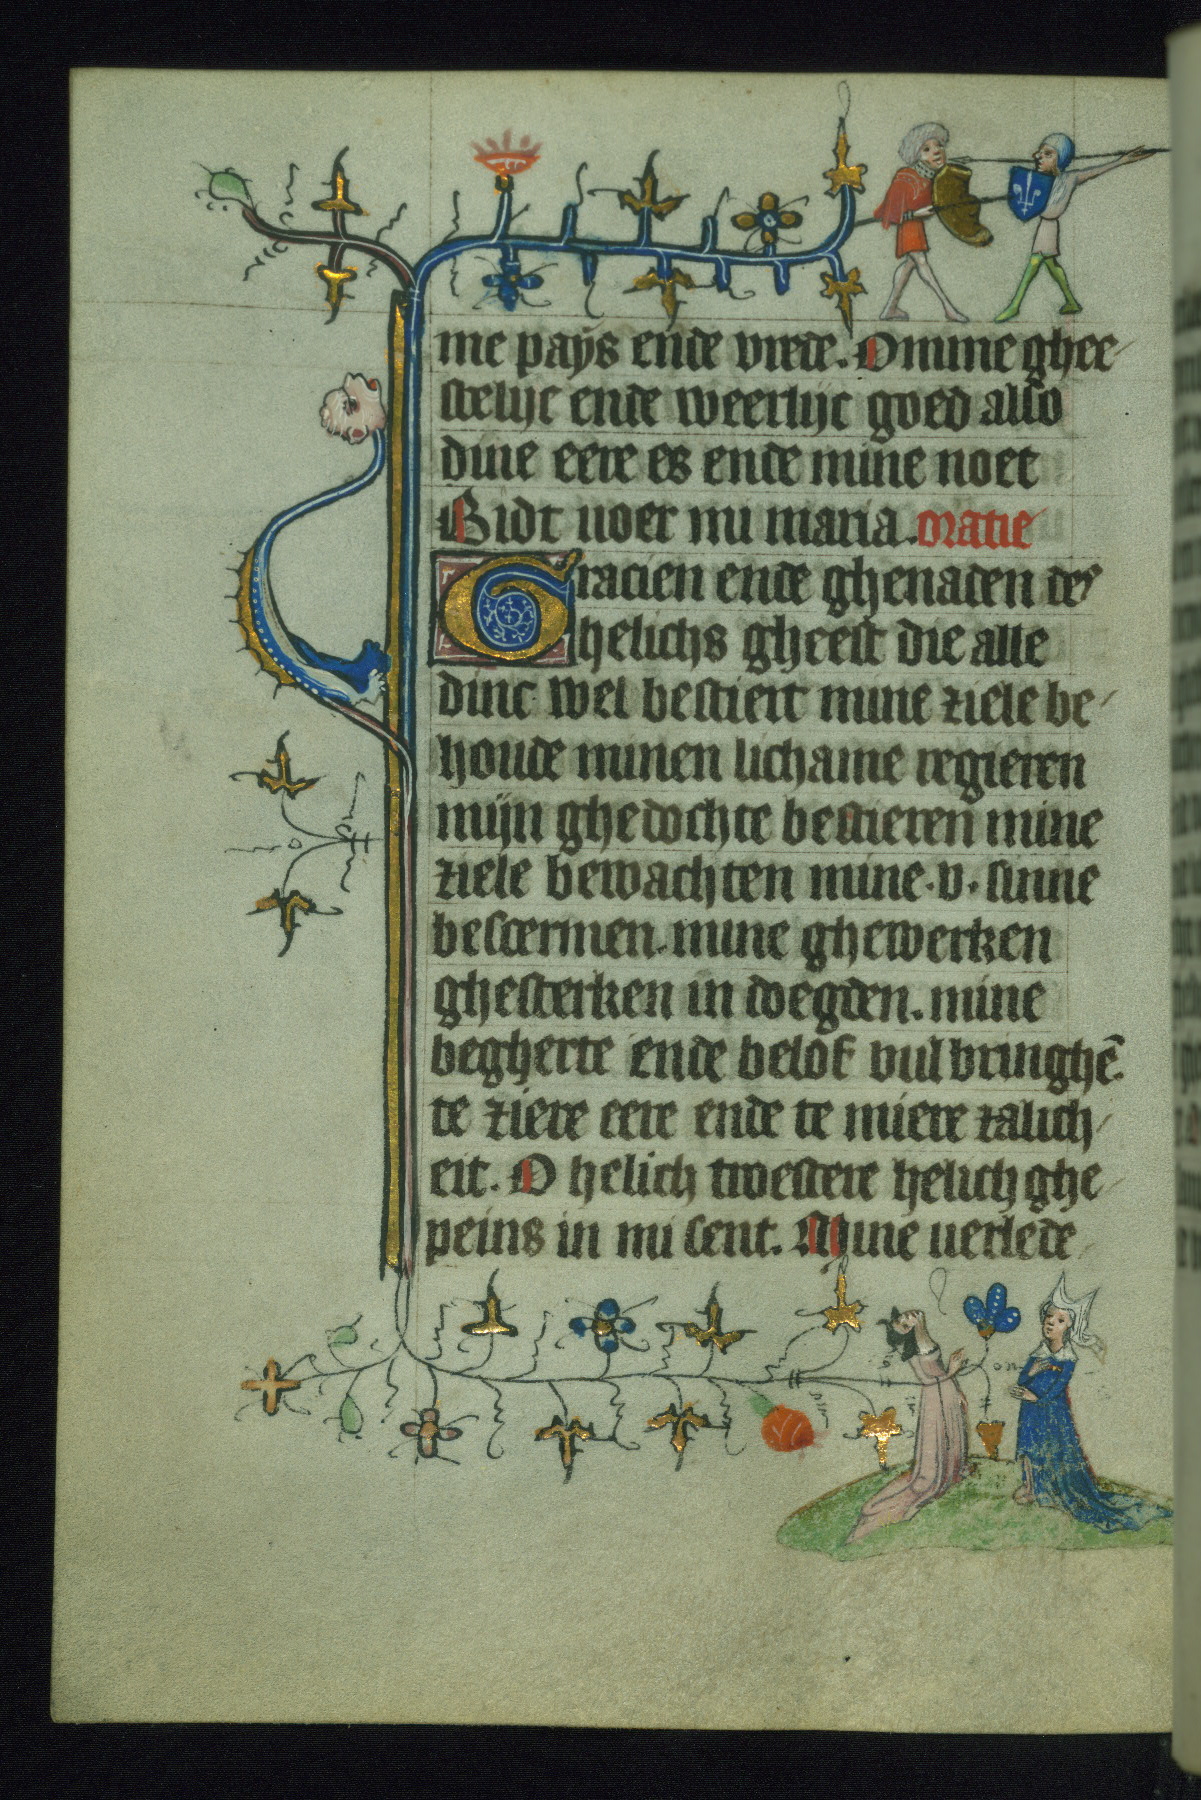 me pays ende vrede. Omme ghee
stelijc ende weerlijc goed also
dine eere es ende mine noet
Bidt uoer mi maria. oratie
Gracien ende ghenaden des
helichs gheest die alle
dinc wel bestiert mine ziele be
houde minen lichame regieren
mijn ghedochte bestieren mine
ziele bewachten mine .v. sinne
bescermen. mine ghewerken
ghesterken in doegden. mine
begherte ende belof vulbringhē.
te ziere eere ende te miere zalich
eit. O helich troestere helich ghe
peins in mi sent. Mine uerlede